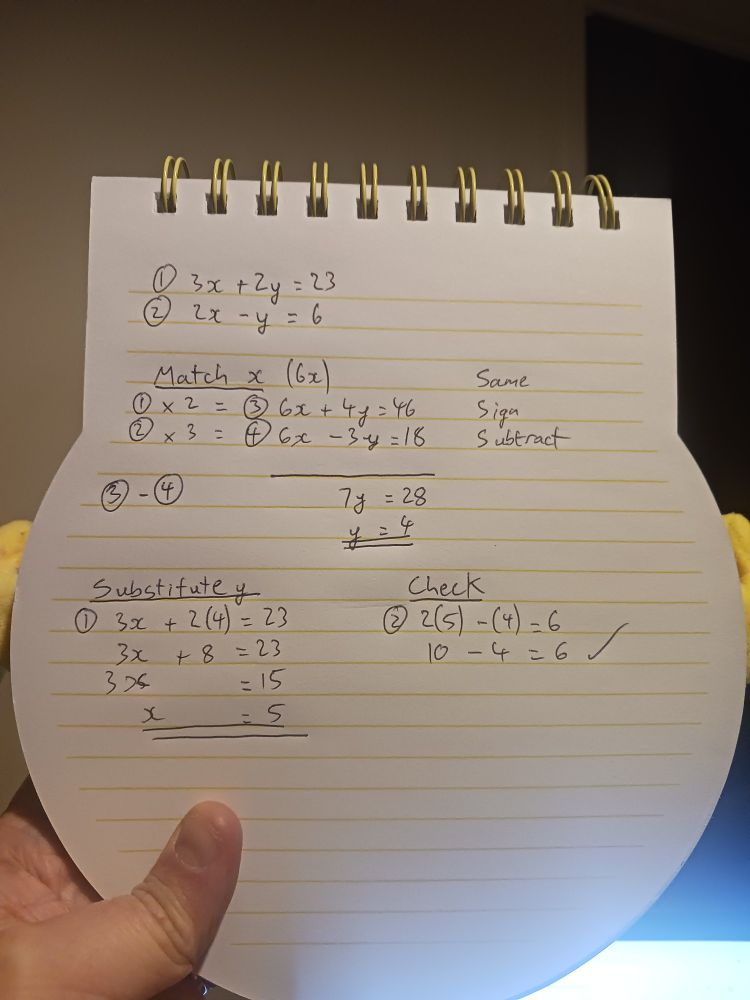 ① 3x + 2y = 23
② 2x - y = 6
Match x (6x) Same
① × 2 = ③ 6x + 4y = 46 Sign
② × 3 = ④ 6x - 3y = 18 Subtract
③ - ④ 7y = 28
y = 4
Substitute y Check
① 3x + 2(4) = 23 ② 2(5) - (4) = 6
3x + 8 = 23 10 - 4 = 6 ✓
3x = 15
x = 5